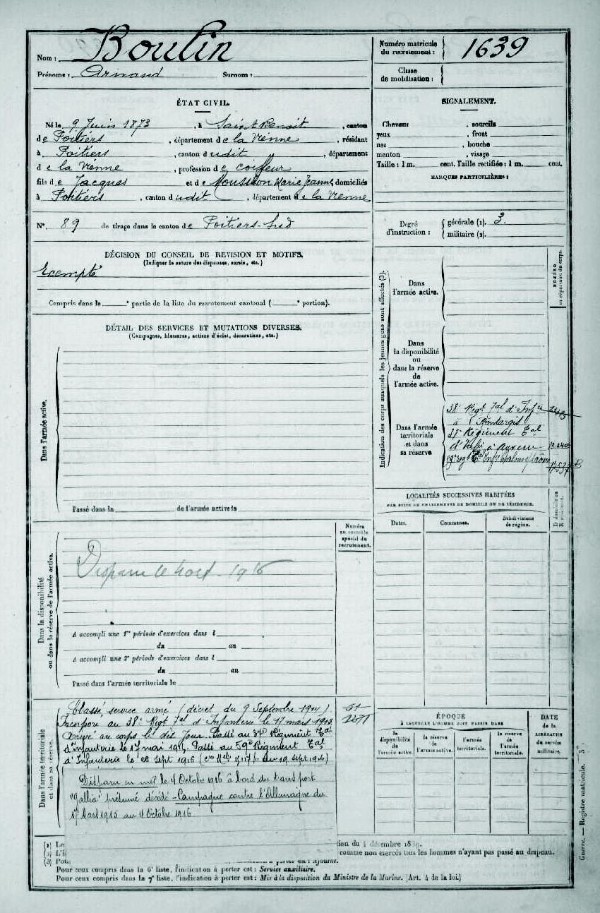 Nom : Boulin
Prénoms : Arnaud Surnom :
Numéro matricule du recrutement : 1639
Classe de mobilisation :
ÉTAT CIVIL.
Né le 9 Juin 1873, à Saint Benoit, canton
de Poitiers, département de la Vienne, résidant
à Poitiers, canton dudit, département
de la Vienne, profession de coiffeur
fils de Jacques et de Marie Jeanne, domiciliés
à Poitiers, canton dudit, département de la Vienne
N° 89 de tirage dans le canton de Poitiers-Sud
SIGNALEMENT.
Cheveux , sourcils
yeux , front
nez , bouche
menton , visage
Taille : 1 m. cent. Taille rectifiée : 1 m. cent.
MARQUES PARTICULIÈRES :
Degré d'instruction : générale (1). 3.
militaire (2).
DÉCISION DU CONSEIL DE REVISION ET MOTIFS.
Exempté
Compris dans la e partie de la liste du recrutement cantonal ( portion).
DÉTAIL DES SERVICES ET MUTATIONS DIVERSES.
(Campagnes, blessures, actions d'éclat, décorations, etc.)
Dans l'armée active.
Passé dans la de l'armée active le
Indication des corps auxquels les jeunes gens sont affectés (3).
Dans l'armée active.
Dans la disponibilité ou dans la réserve de l'armée active.
Dans l'armée territoriale et dans sa réserve
38e Régt Tal d'Inf
à Montargis
LOCALITÉS SUCCESSIVES HABITÉES
PAR SUITE DE CHANGEMENTS DE DOMICILE OU DE RÉSIDENCE.
Dates. Communes. Subdivisions de région.
Dans la disponibilité ou dans la réserve de l'armée active.
Numéro au contrôle spécial du recrutement.
Disparu le 4 oct. 1916
A accompli une 1re période d'exercices dans l
du au
A accompli une 2e période d'exercices dans l
du au
Passé dans l'armée territoriale le
Dans l'armée territoriale et dans sa réserve.
Classé service armé (décret du 9 Septembre 1914)
Incorporé au 38e Régt Tal d'Infanterie le 17 mars 1915
Arrivé au corps le dit jour. Passé au Régiment Tal
d'infanterie le 17 mai 1915. Passé au 59e Régiment Tal
d'Infanterie le sept 1916
Disparu en mer le 4 Octobre 1916 à bord du transport
"Gallia" présumé décédé - Campagne contre l'Allemagne du
17 Mars 1915 au 4 Octobre 1916
ÉPOQUE
À LAQUELLE L'HOMME DOIT PASSER DANS
la disponibilité de l'armée active.
la réserve de l'armée active.
l'armée territoriale.
la réserve de l'armée territoriale.
DATE de la LIBÉRATION DU SERVICE MILITAIRE.
comme non exercés tous les hommes n'ayant pas passé au drapeau.
Pour ceux compris dans la 6e liste, l'indication à porter est : Services auxiliaires.
Pour ceux compris dans la 7e liste, l'indication à porter est : Mis à la disposition du Ministre de la Marine. (Art. 4 de la loi.)
Guerre. — Registre matricule.